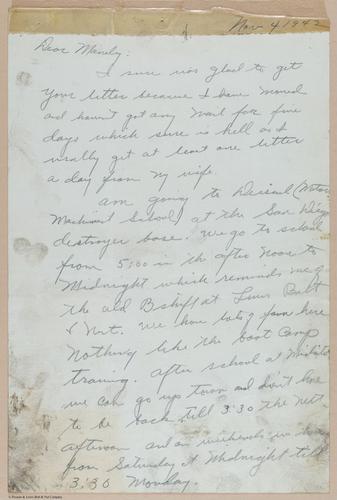 Nov 4 1942
Dear Mandy:
I sure was glad to get
your letter because I have moved
and haven't got any mail for five
days which sure is hell as I
usally get at least one letter
a day from my wife.
am going to Deisel (Motor
Machinist School) at the San Diego
destroyer base. We go to school
from 5:00 in the after noon to
Midnight which reminds me of
the old B shift at
& Nut. We have lots of fun here
Nothing like the boot Camp
training. after school at Midnite
we can go up town and don't have
to be back till 3:30 the next
afternoon and on weekends
from Saturday at Midnight till
3:30 Monday.